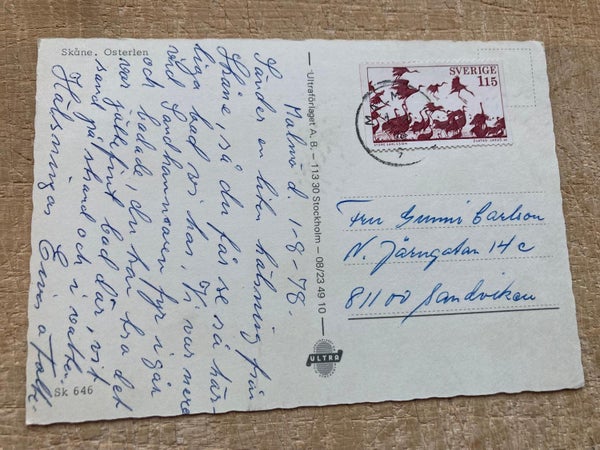 Skåne. Österlen
Malmö d. 1-8-78.
Sänder en liten hälsning från
Skåne, så du får se så här-
liga bad vi har. Vi var nere
vid Sandhammaren fyr igår
och badade, du kan tro det
var jättefint bad där, vit
sand på strand och i vattn.
Hälsningar Einar o Falle
Sk 646
Ultraförlaget A. B. – 113 30 Stockholm – 08/23 49 10
ULTRA
SVERIGE
115
Fru Gunni Carlson
N. Järngatan 14 c
81100 Sandviken